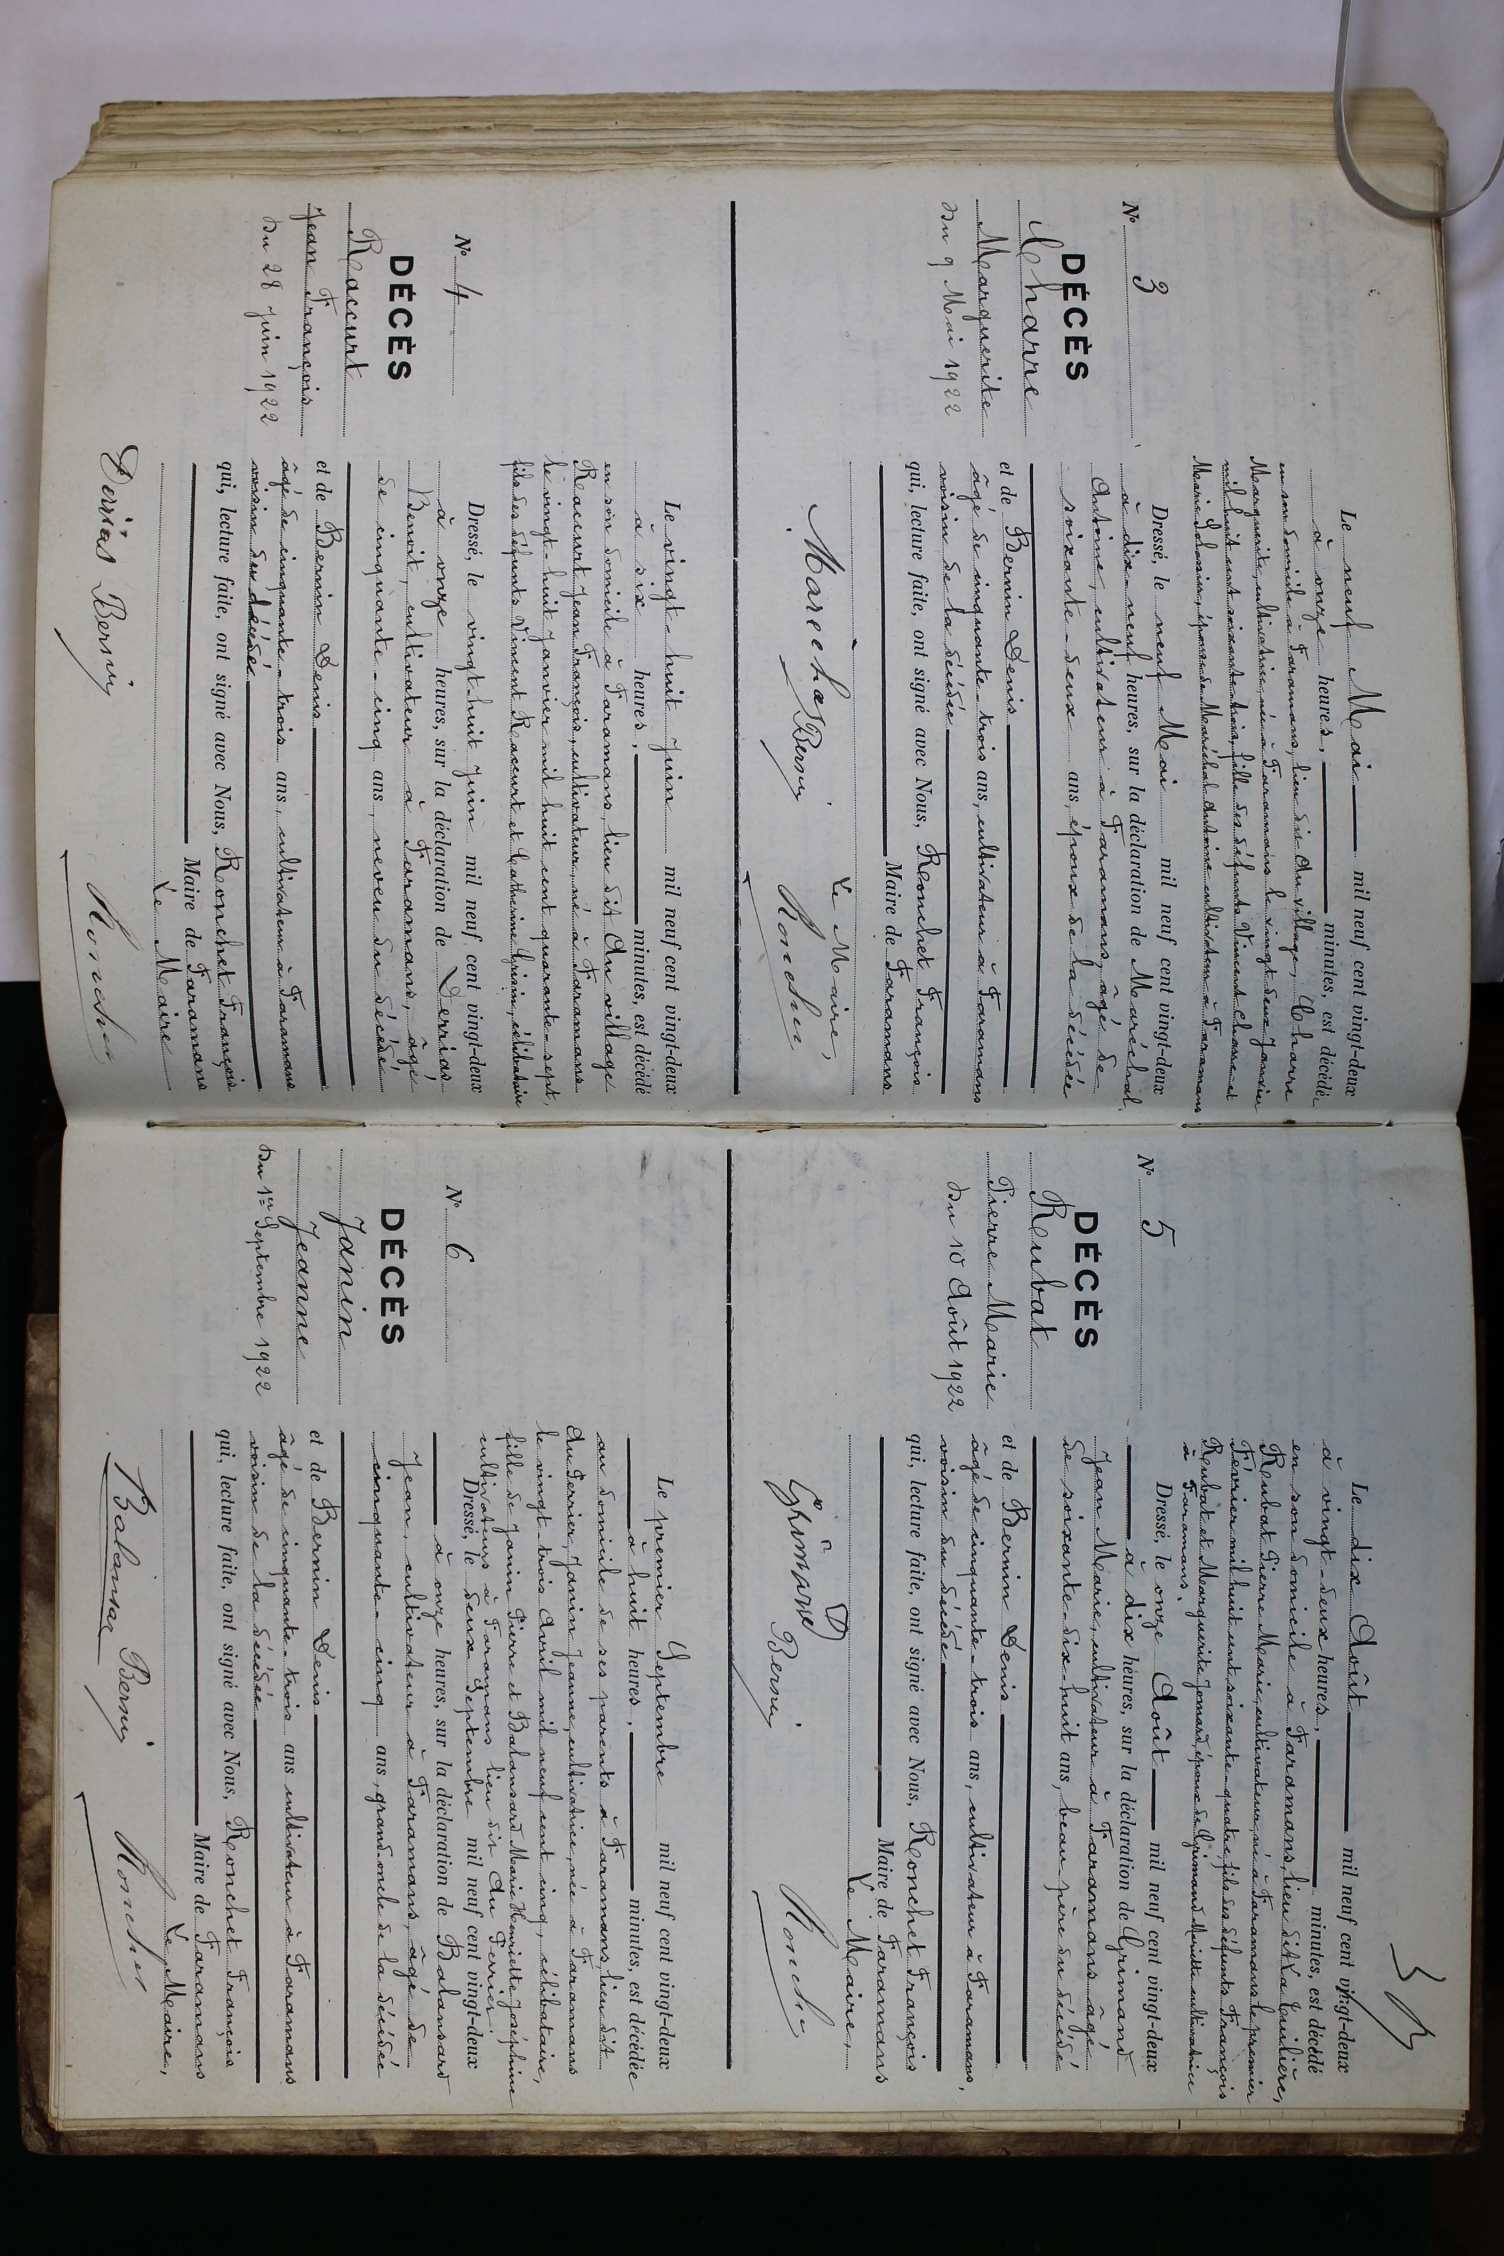 N° 3
DÉCÈS
Charre
Marguerite
Du 9 Mai 1922
Le neuf Mai mil neuf cent vingt-deux
à onze heures, minutes, est décédée
en son domicile à Faramans, lieu dit Au village, Charre
Marguerite, cultivatrice, née à Faramans le vingt deux Janvier
mil huit cent soixante trois, fille des défunts Vincent Charre et
Marie, épouse de Maréchal Antoine cultivateur à Faramans
Dressé, le neuf Mai mil neuf cent vingt-deux
à dix-neuf heures, sur la déclaration de Maréchal
Antoine, cultivateur à Faramans, âgé de
soixante-deux ans, époux de la décédée
et de Bernin Denis
âgé de cinquante-trois ans, cultivateur à Faramans
voisin de la décédée
qui, lecture faite, ont signé avec Nous, Ronchet François
Maire de Faramans
Le Maire,
Marechal Bernin Ronchet
N° 4
DÉCÈS
Raccurt
Jean François
Du 28 Juin 1922
Le vingt-huit Juin mil neuf cent vingt-deux
à six heures, minutes, est décédé
en son domicile à Faramans, lieu dit Au village
Raccurt Jean François, cultivateur, né à Faramans
le vingt-huit Janvier mil huit cent quarante-sept,
fils des défunts Vincent Raccurt et Catherine, célibataire
Dressé, le vingt-huit Juin mil neuf cent vingt-deux
à onze heures, sur la déclaration de Derrias
Benoit, cultivateur à Faramans, âgé
de cinquante-cinq ans, neveu du décédé
et de Bernin Denis
âgé de cinquante-trois ans, cultivateur à Faramans
voisin du décédé
qui, lecture faite, ont signé avec Nous, Ronchet François
Maire de Faramans
Le Maire
Derrias Bernin Ronchet
N° 5
DÉCÈS
Rubat
Pierre Marie
Du 10 Août 1922
Le dix Août mil neuf cent vingt-deux
à vingt-deux heures, minutes, est décédé
en son domicile à Faramans, lieu dit La Tuilière,
Rubat Pierre Marie, cultivateur, né à Faramans le premier
Février mil huit cent soixante-quatre, fils des défunts François
Rubat et Marguerite Jomard, époux de Grimand Mariette cultivatrice
à Faramans.
Dressé, le onze Août mil neuf cent vingt-deux
à dix heures, sur la déclaration de Grimand
Jean Marie, cultivateur à Faramans âgé
de soixante-dix-huit ans, beau père du décédé
et de Bernin Denis
âgé de cinquante-trois ans, cultivateur à Faramans,
voisin du décédé
qui, lecture faite, ont signé avec Nous, Ronchet François
Maire de Faramans
Le Maire,
Grimand Bernin Ronchet
N° 6
DÉCÈS
Janin
Jeanne
Du 1er Septembre 1922
Le premier Septembre mil neuf cent vingt-deux
à huit heures, minutes, est décédée
au domicile de ses parents à Faramans, lieu dit
Au Perrier, Janin Jeanne, cultivatrice, née à Faramans
le vingt trois Avril mil neuf cent cinq, célibataire,
fille de Janin Pierre et Balansard Marie Henriette Joséphine
cultivateurs à Faramans lieu dit Au Perrier
Dressé, le deux Septembre mil neuf cent vingt-deux
à onze heures, sur la déclaration de Balansard
Jean, cultivateur à Faramans, âgé de
cinquante-cinq ans, grand oncle de la décédée
et de Bernin Denis
âgé de cinquante-trois ans cultivateur à Faramans
voisin de la décédée
qui, lecture faite, ont signé avec Nous, Ronchet François
Maire de Faramans
Le Maire,
Balansar Bernin Ronchet